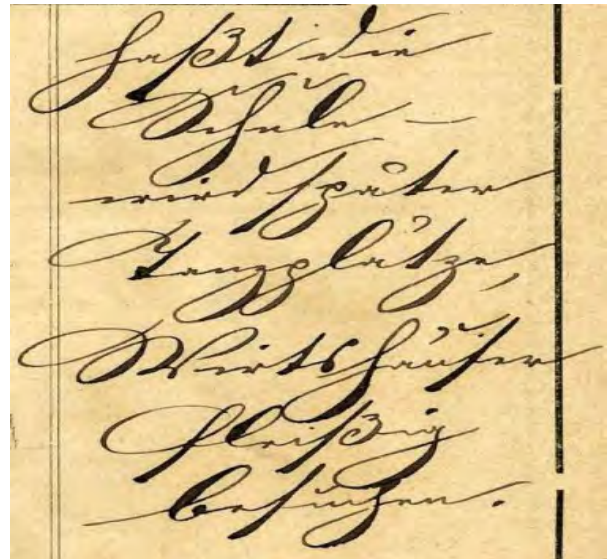 haßt die
Schule –
wird später
Tanzplätze,
Wirtshäuser
fleißig
besuchen.